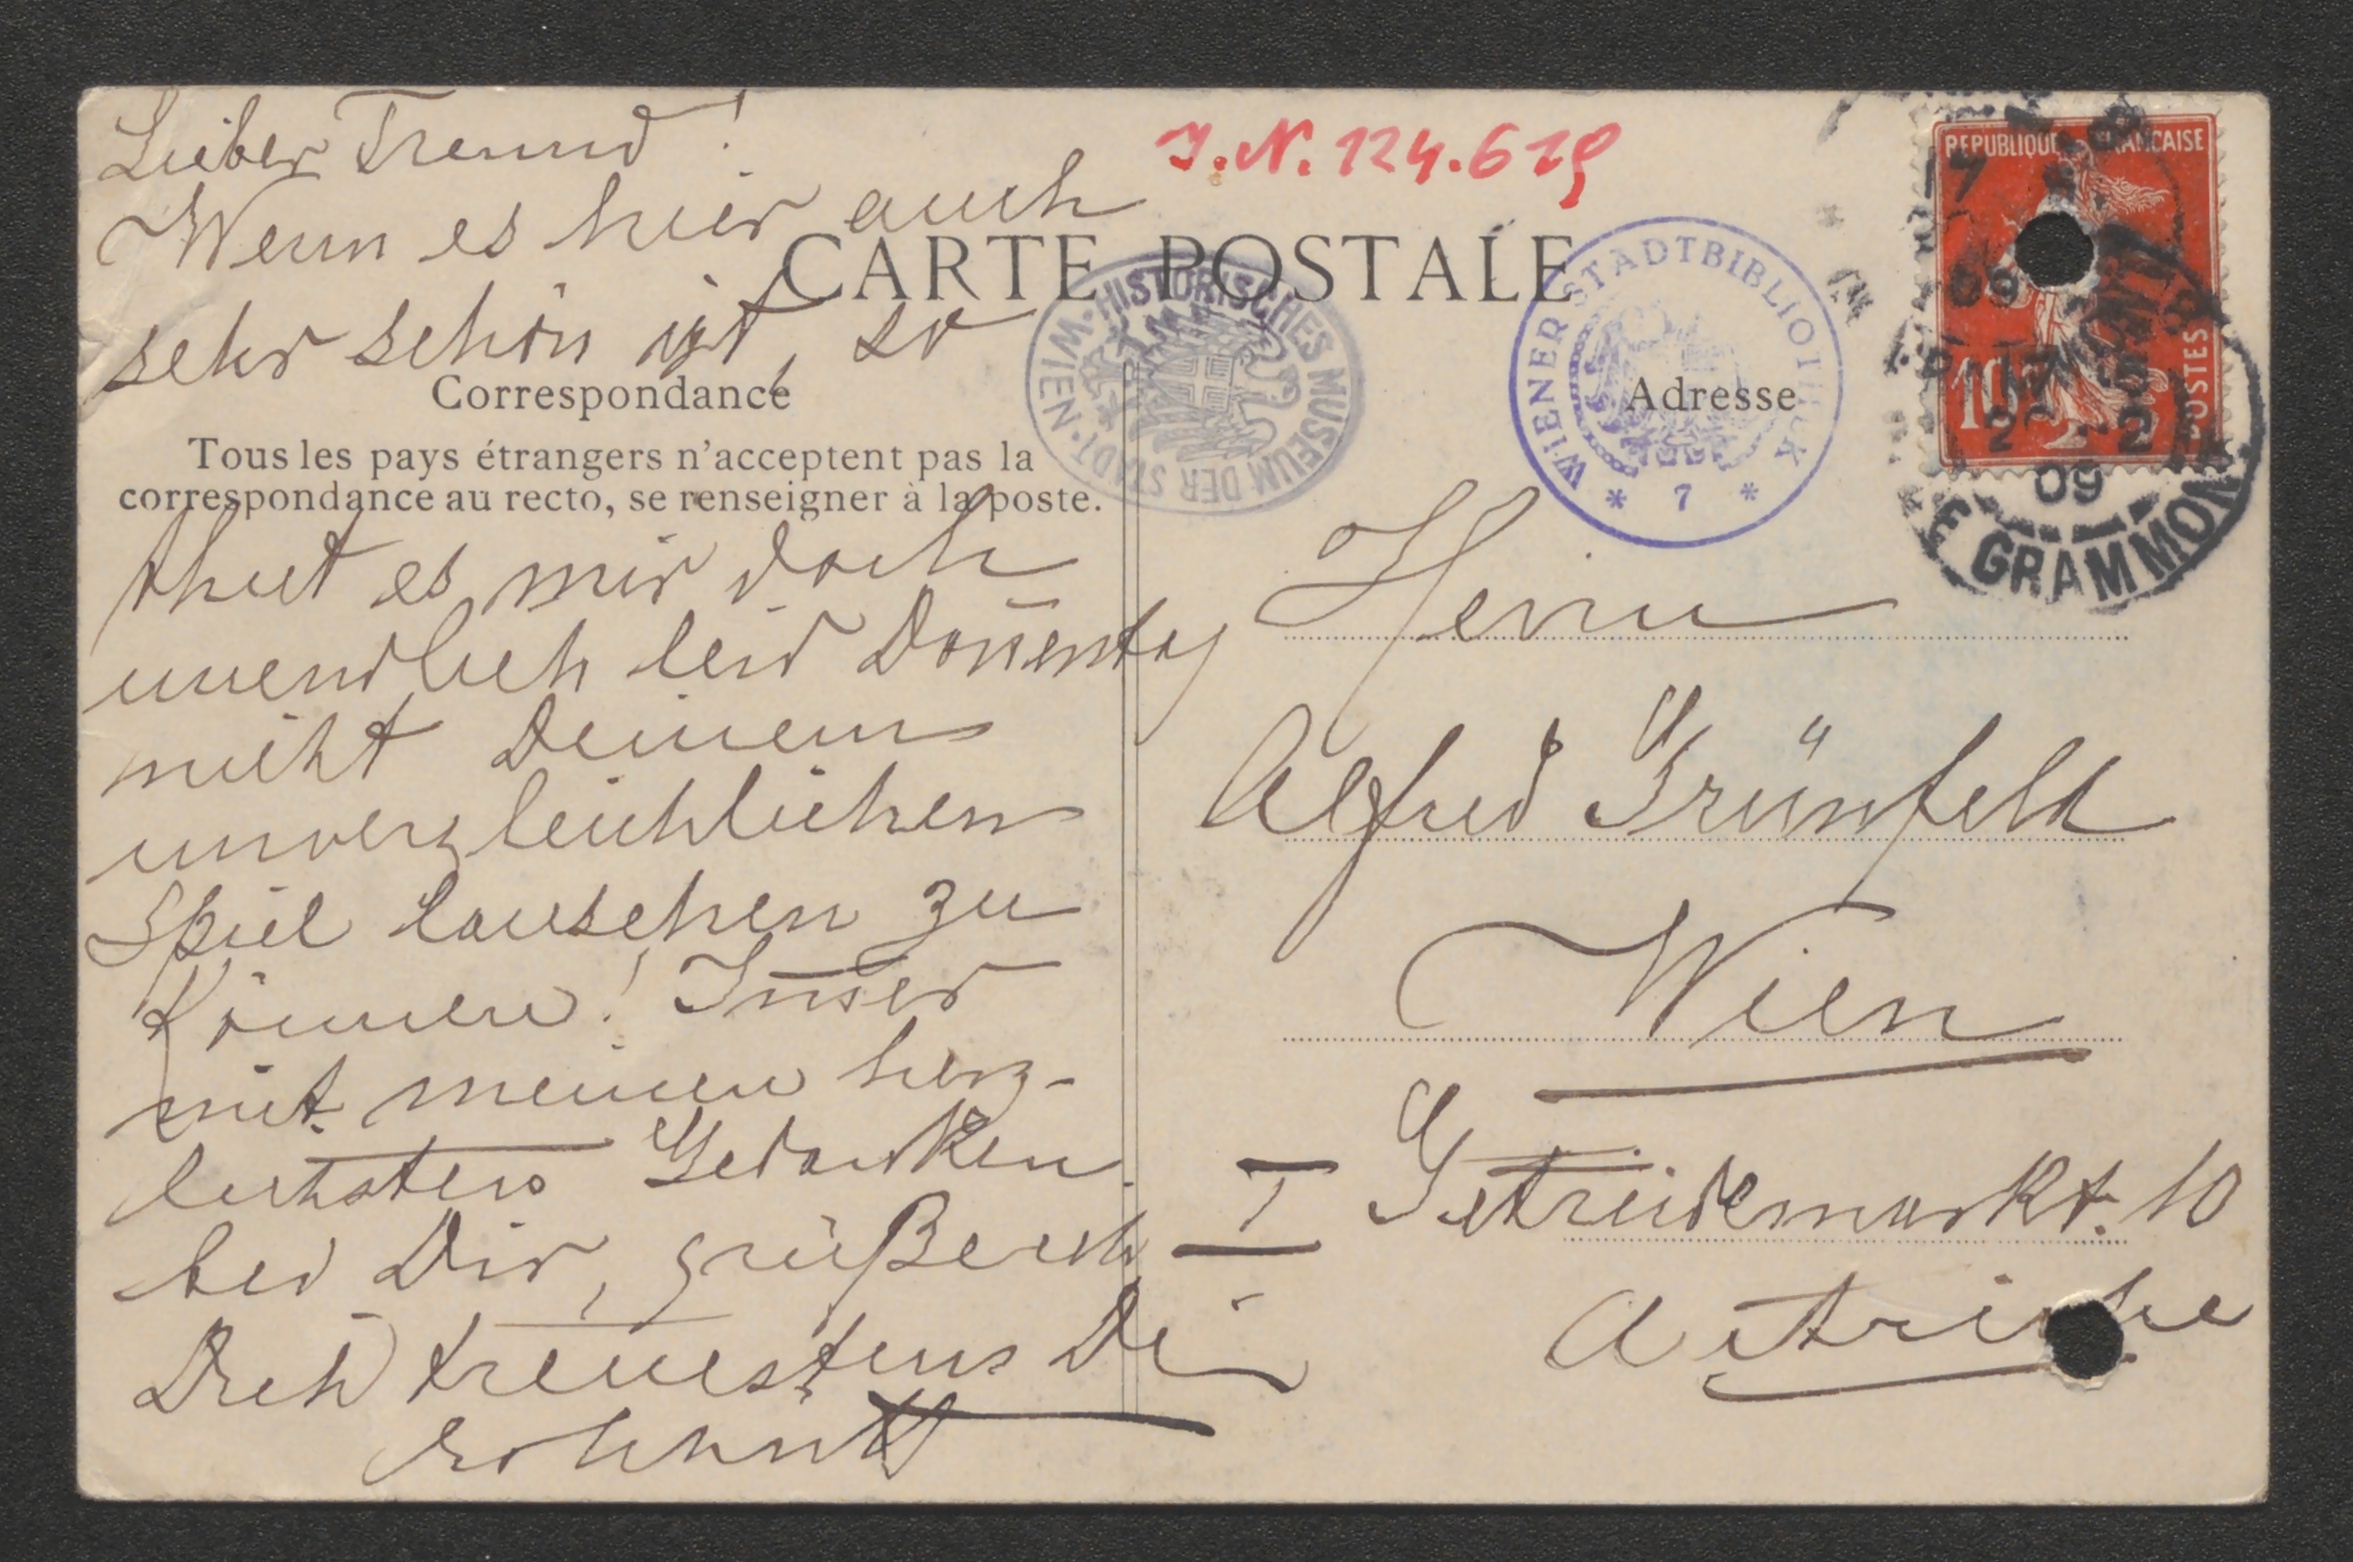 Lieber Freund!
Wenn es hier auch
sehr schön ist, so
thut es mir doch
unendlich leid Donnerstag
nicht Deinem
unvergleichlichen
Spiel lauschen zu
können! Immer
mit meinen herz-
lichsten Gedanken
bei Dir, grüße ich
Dich treuestens Dein
J.N. 124.619
CARTE POSTALE
Correspondance
Tous les pays étrangers n'acceptent pas la
correspondance au recto, se renseigner à la poste.
HISTORISCHES MUSEUM DER STADT · WIEN ·
WIENER STADTBIBLIOTHEK
* 7 *
Adresse
REPUBLIQUE FRANCAISE
10
POSTES
17
09
GRAMMON
Herrn
Alfred Grünfeld
Wien
I Getreidemarkt. 10